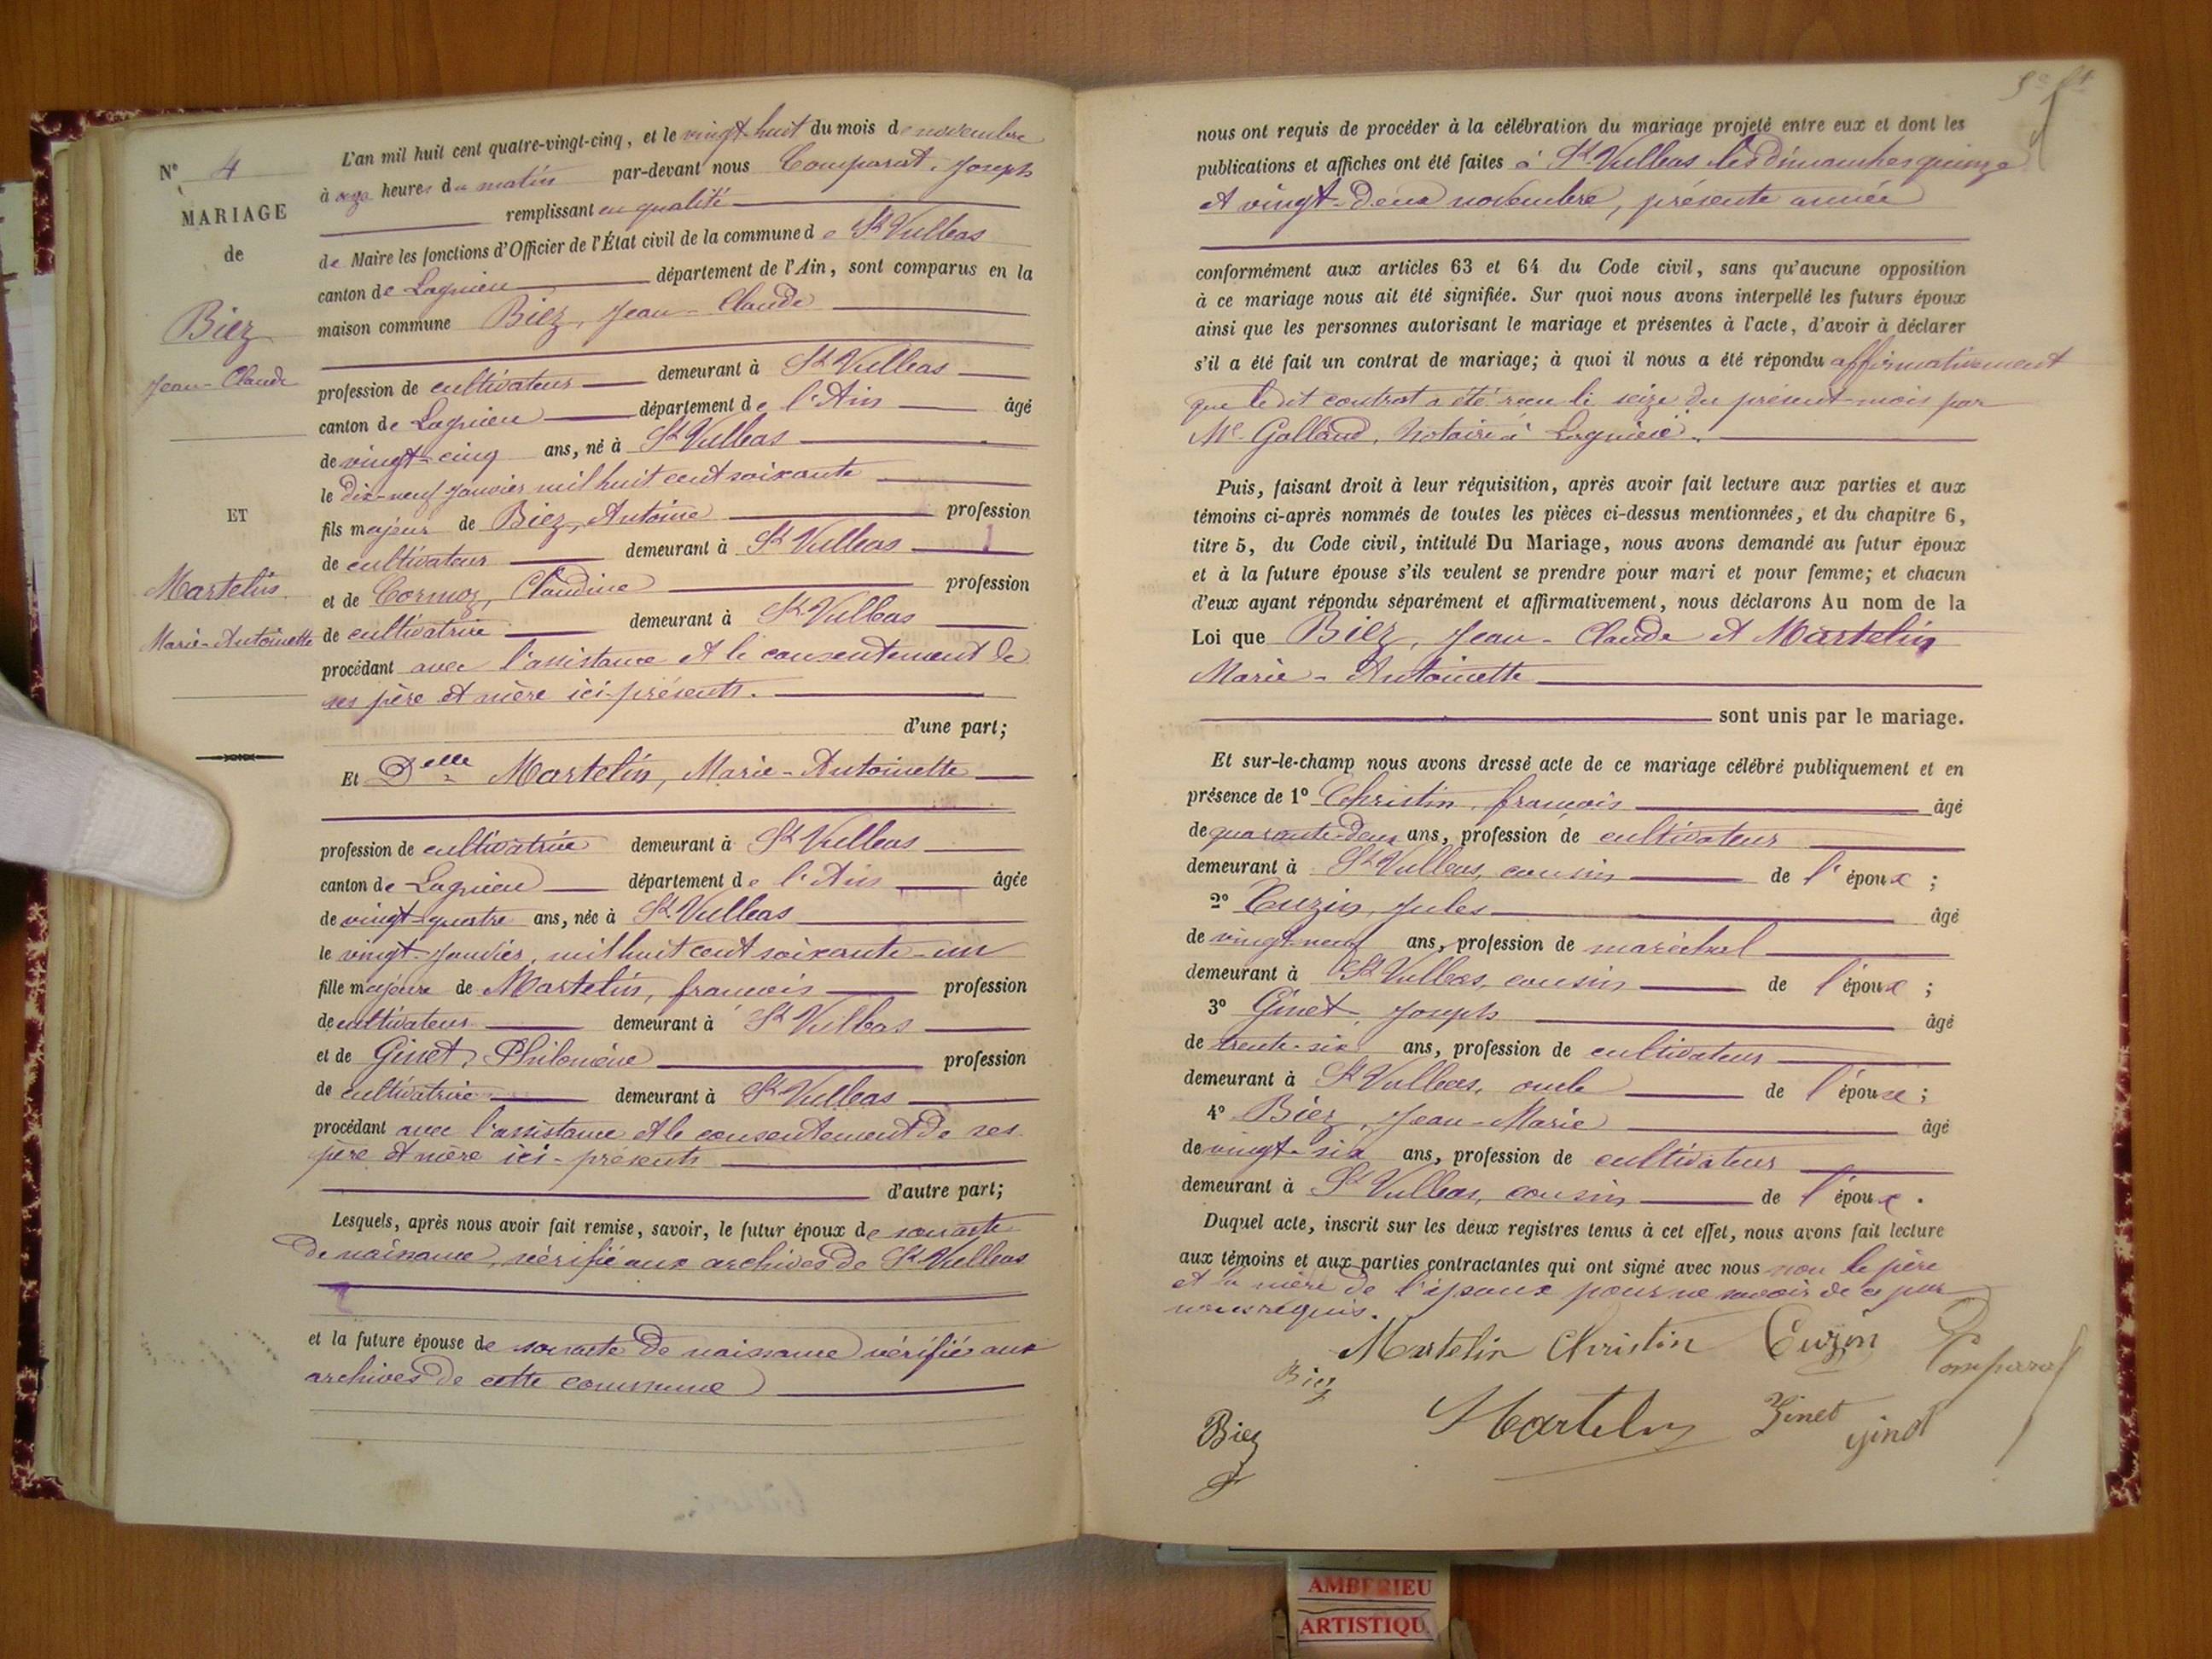 N° 4
MARIAGE
de
Biez
Jean-Claude
ET
Martelin
Marie-Antoinette
L'an mil huit cent quatre-vingt-cinq, et le vingt-huit du mois de novembre
à onze heures du matin par-devant nous Comparat, Joseph
remplissant en qualité
de Maire les fonctions d'Officier de l'État civil de la commune de St Vulbas
canton de Lagnieu département de l'Ain, sont comparus en la
maison commune Biez, Jean-Claude
profession de cultivateur demeurant à St Vulbas
canton de Lagnieu département de l'Ain âgé
de vingt-cinq ans, né à St Vulbas
le dix-neuf janvier mil huit cent soixante
fils majeur de Biez, Antoine profession
de cultivateur demeurant à St Vulbas
et de Cormoz, Claudine profession
de cultivatrice demeurant à St Vulbas
procédant avec l'assistance et le consentement de
ses père et mère ici-présents.
d'une part;
Et Delle Martelin, Marie-Antoinette
profession de cultivatrice demeurant à St Vulbas
canton de Lagnieu département de l'Ain âgée
de vingt-quatre ans, née à St Vulbas
le vingt-janvier, mil huit cent soixante-un
fille majeure de Martelin, françois profession
de cultivateur demeurant à St Vulbas
et de Ginet, Philomène profession
de cultivatrice demeurant à St Vulbas
procédant avec l'assistance et le consentement de ses
père et mère ici-présents
d'autre part;
Lesquels, après nous avoir fait remise, savoir, le futur époux de son acte
de naissance, vérifié aux archives de St Vulbas
et la future épouse de son acte de naissance vérifié aux
archives de cette commune
nous ont requis de procéder à la célébration du mariage projeté entre eux et dont les
publications et affiches ont été faites à St Vulbas les dimanches quinze
et vingt-deux novembre, présente année
conformément aux articles 63 et 64 du Code civil, sans qu'aucune opposition
à ce mariage nous ait été signifiée. Sur quoi nous avons interpellé les futurs époux
ainsi que les personnes autorisant le mariage et présentes à l'acte, d'avoir à déclarer
s'il a été fait un contrat de mariage; à quoi il nous a été répondu affirmativement
que le dit contrat a été reçu le seize du présent mois par
Me Galland, Notaire à Lagnieu.
Puis, faisant droit à leur réquisition, après avoir fait lecture aux parties et aux
témoins ci-après nommés de toutes les pièces ci-dessus mentionnées, et du chapitre 6,
titre 5, du Code civil, intitulé Du Mariage, nous avons demandé au futur époux
et à la future épouse s'ils veulent se prendre pour mari et pour femme; et chacun
d'eux ayant répondu séparément et affirmativement, nous déclarons Au nom de la
Loi que Biez, Jean-Claude et Martelin
Marie-Antoinette
sont unis par le mariage.
Et sur-le-champ nous avons dressé acte de ce mariage célébré publiquement et en
présence de 1° Christin, françois âgé
de quarante-deux ans, profession de cultivateur
demeurant à St Vulbas, cousin de l'époux;
2° Cuzin, Jules âgé
de vingt-neuf ans, profession de maréchal
demeurant à St Vulbas, cousin de l'époux;
3° Ginet, Joseph âgé
de trente-six ans, profession de cultivateur
demeurant à St Vulbas, oncle de l'épouse;
4° Biez, Jean-Marie âgé
de vingt-six ans, profession de cultivateur
demeurant à St Vulbas, cousin de l'époux.
Duquel acte, inscrit sur les deux registres tenus à cet effet, nous avons fait lecture
aux témoins et aux parties contractantes qui ont signé avec nous non le père
et la mère de l'époux pour ne savoir de ce par
nous requis.
Martelin Christin Cuzin Comparat
Biez
Biez Martelin Ginet ginet
AMBERIEU
ARTISTIQU